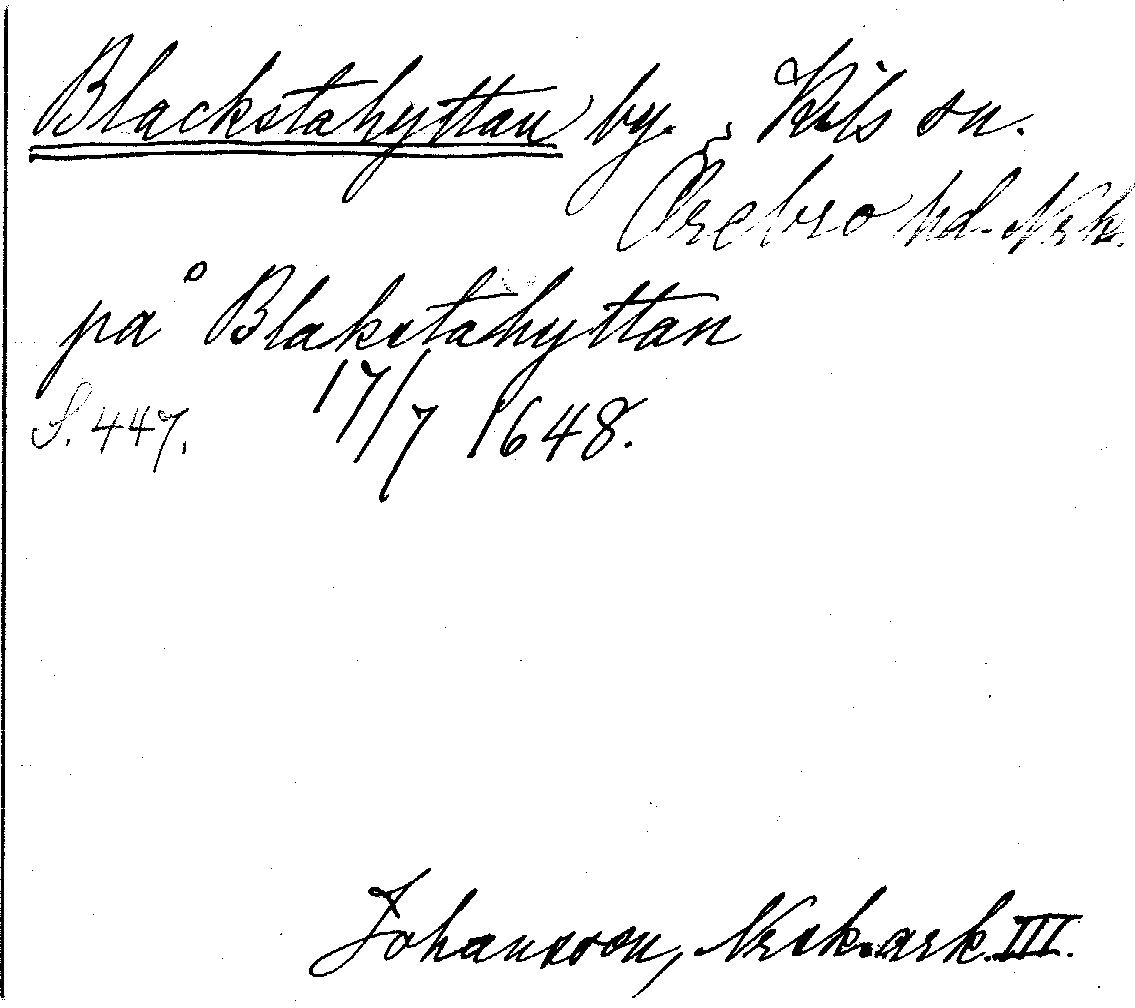 Blackstahyttan by. Kils sn.
Örebro hd. Nrk.
på Blakstahyttan
S. 447. 17/7 1648.
Johansson, Nrsk. ark. III.